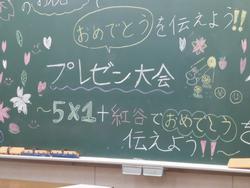 おめでとうを伝えよう!!
プレゼン大会
～5×1+紅谷でおめでとうを
伝えよう!!